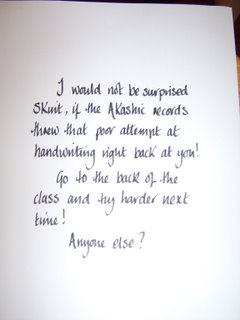 I would not be surprised
Skuit, if the Akashic records
threw that poor attempt at
handwriting right back at you!
Go to the back of the
class and try harder next
time!
Anyone else?